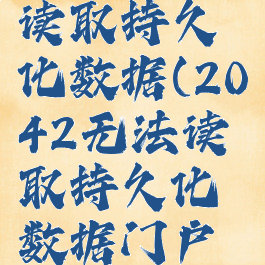 读取持久
化数据(20
42无法读
取持久化
数据门户